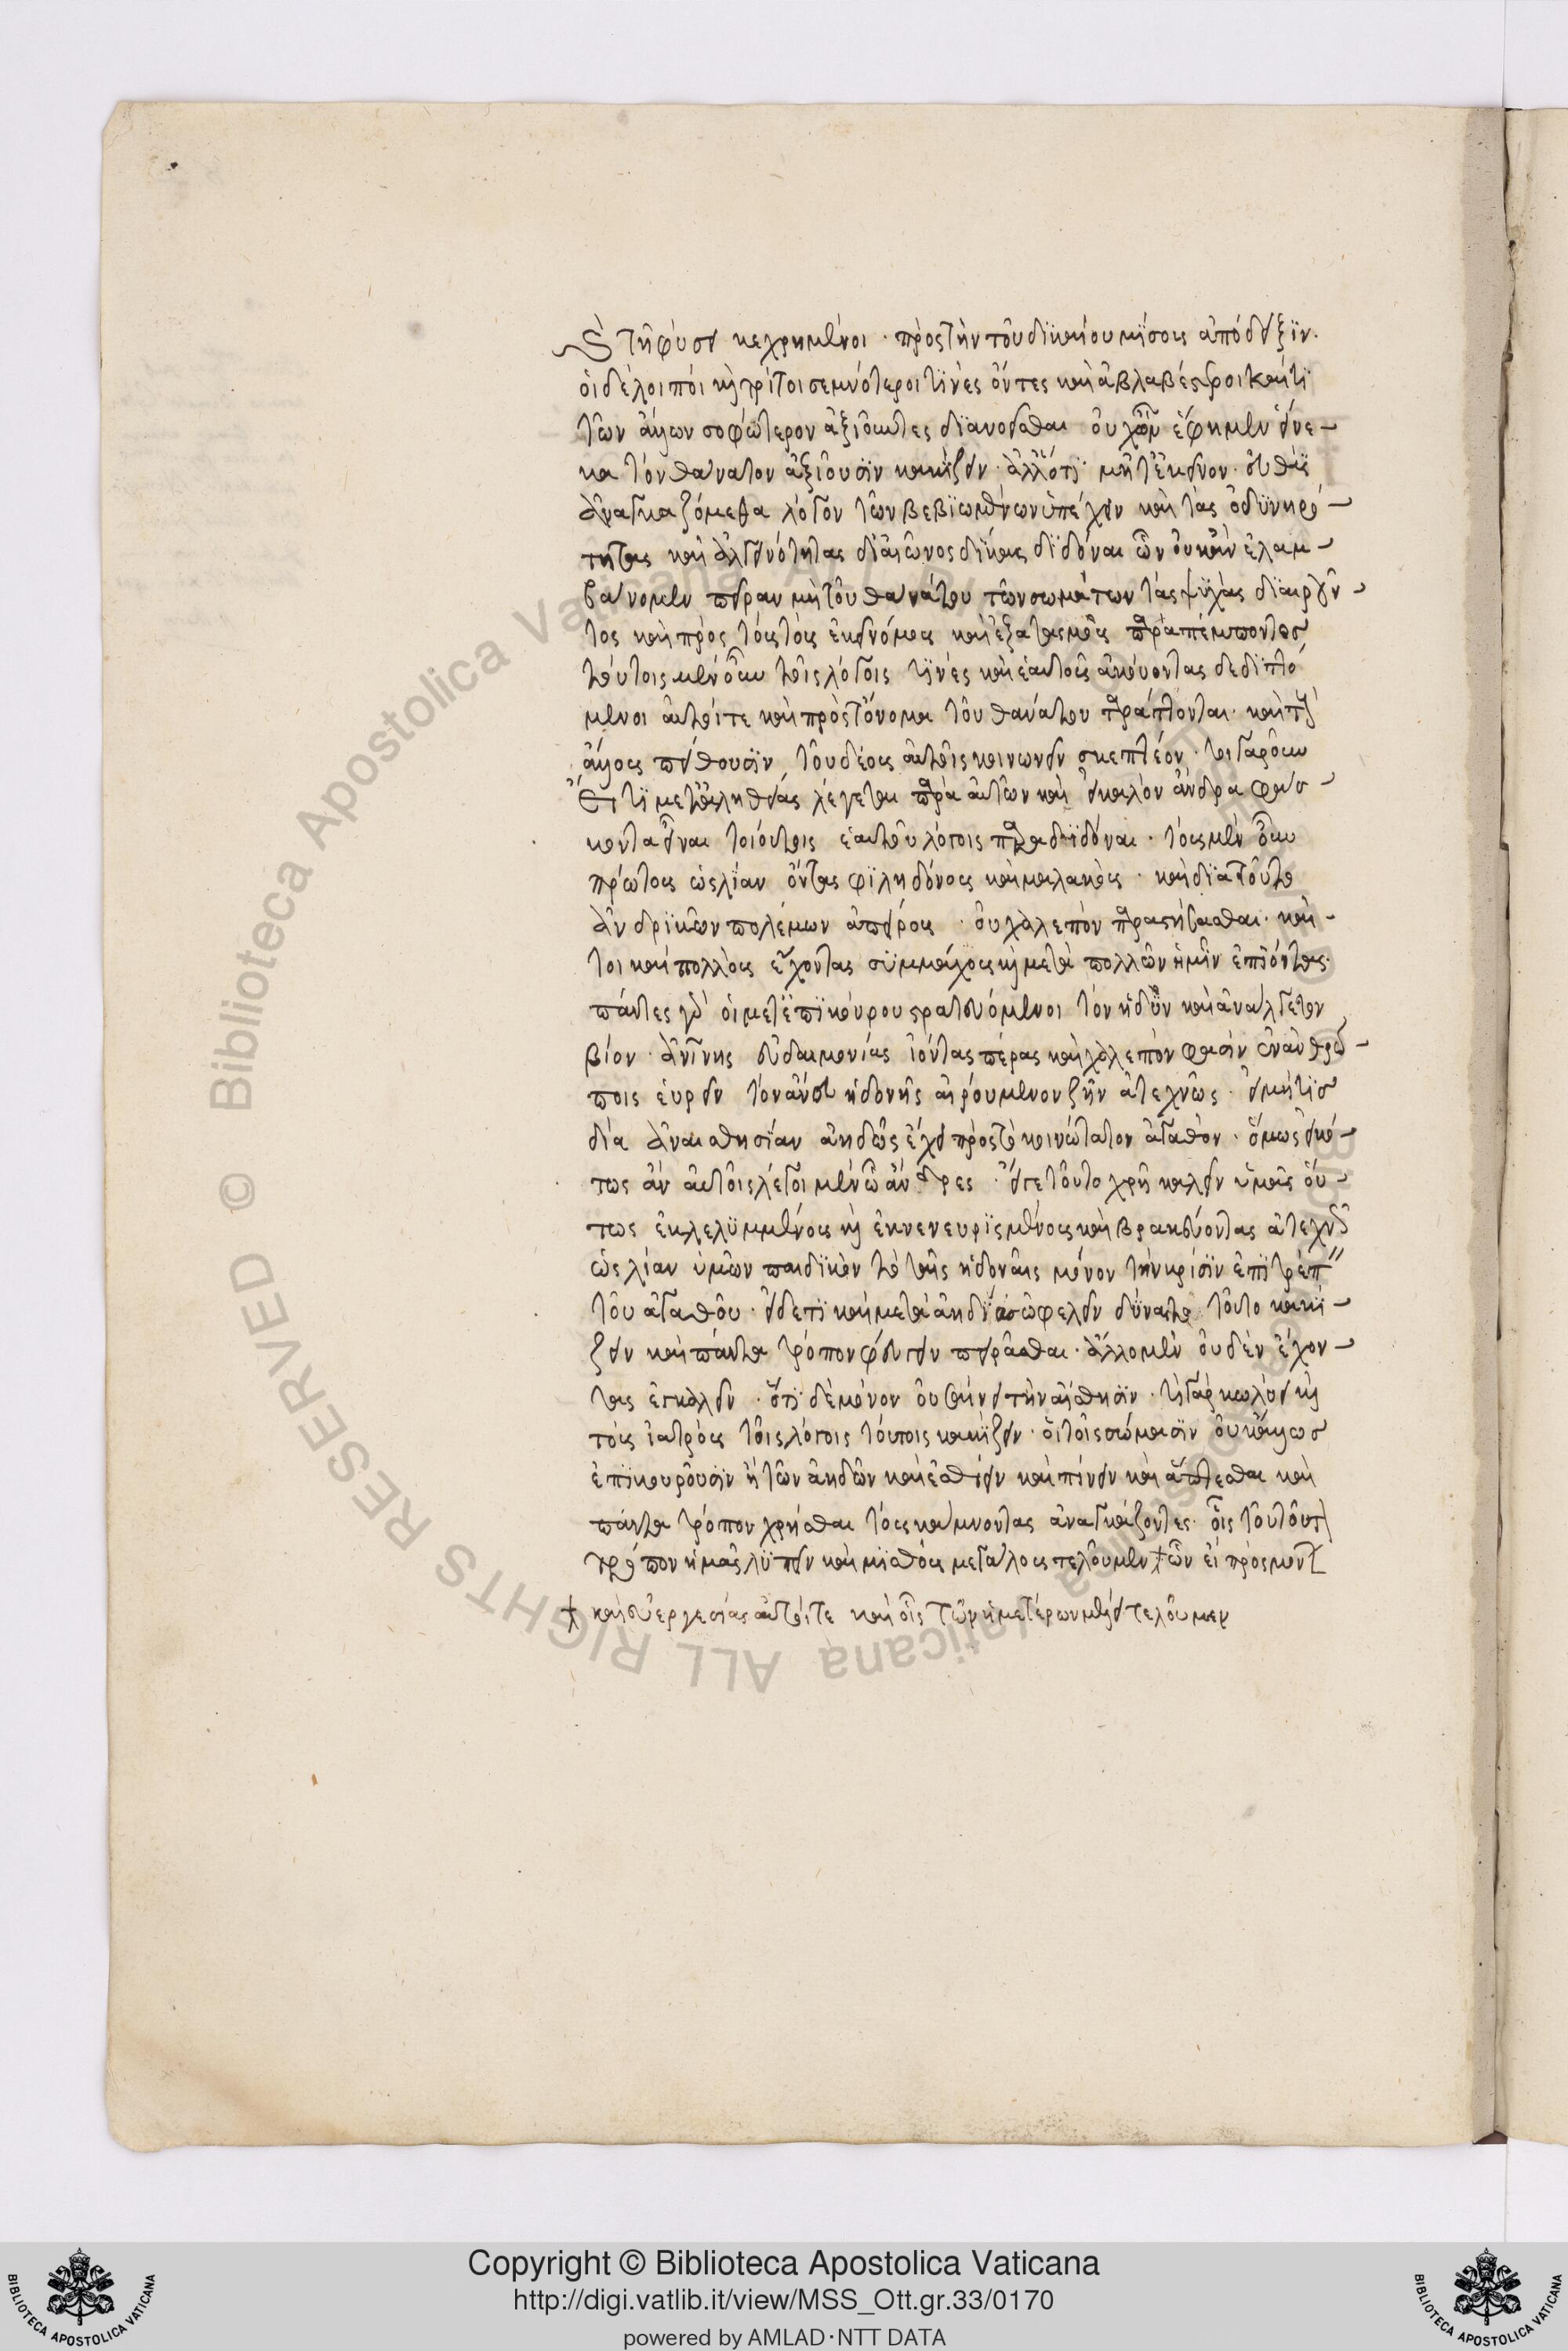 τῆ φύσει κεχρημένοι · πρὸς τὴν τοῦ δϊκαίου μίσους ἀπόδειξϊν.
οἱ δὲ λοιποὶ καὶ τρίτοι σεμνότεροι τϊνὲς ὄντες καὶ ἀβλαβέστεροι καί τϊ
τῶν ἄλλων σοφώτερον ἀξιοῦντες δϊανοεῖσθαι οὐχ ὧν ἔφημεν εἵνε-
κα τὸν θάνατον ἀξιοῦσϊν κακίζειν · ἀλλ' ὅτϊ μετ' ἐκεῖνον · εὐθὺς
ἀναγκαζόμεθα λόγον τῶν βεβϊωμένων ὑπέχειν καὶ τὰς ὀδϋνηρό-
τητας καὶ ἀλγεινότητας δι' αἰῶνος δίκας δϊδόναι ὧν οὐκ ἂν ἐλαμ-
βάνομεν πεῖραν μὴ τοῦ θανάτου τῶν σωμάτων τὰς ψϋχὰς δϊαιροῦν-
τος καὶ πρὸς τοὺς ἐκεῖ νόμους καὶ ἐξετασμοὺς παραπέμποντος
τούτοις μὲν οὖν τοῖς λόγοις τϊνὲς καὶ ἑαυτοὺς ἀκούοντας δεδϊττό
μενοι αὐτοί τε καὶ πρὸς τοὔνομα τοῦ θανάτου ταράττονται · καὶ τοὺς
ἄλλους πείθουσϊν τοῦ δέους αὐτοῖς κοινωνεῖν σκεπτέον · τί γὰρ οὖν
ἔτϊ μετ' ἀληθείας λέγεται παρὰ αὐτῶν καὶ εἰ καλὸν ἄνδρα φάσ-
κοντα εἶναι τοιούτοις ἑαυτοῦ λόγοις παραδϊδόναι · τοὺς μὲν οὖν
πρώτους ὡς λίαν ὄντας φϊληδόνους καὶ μαλακοὺς · καὶ δϊὰ τοῦτο
ἀνδρϊκῶν πολέμων ἀπείρους · οὐ χαλεπὸν παραστήσασθαι · καὶ-
τοι καὶ πολλοὺς ἔχοντας σϋμμάχους καὶ μετὰ πολλῶν ἡμῖν ἐπιόντας.
πάντες γὰρ οἱ μετ' ἐπϊκούρου στρατευόμενοι τὸν ἡδὺν καὶ ἀνάλγητον
βίον · εὐδαιμονίας ἰόντας πέρας καὶ χαλεπὸν φασὶν ἐν ἀνθρώ-
ποις εὑρεῖν τὸν ἄνευ ἡδονῆς αἱρούμενον ζῆν ἀτεχνῶς · εἰ μή τϊς
δϊὰ ἀναισθησίαν ἀηδῶς ἔχει πρὸς τὸ κοινότατον ἀγαθὸν · ὅμως εἰκό-
τως ἂν αὐτοῖς λέγοιμεν ὦ ἄνδρες · εἴτε τοῦτο χρὴ καλεῖν ὑμᾶς οὕ-
τως ἐκλελϋμμένους καὶ ἐκνενευρϊσμένους καὶ βρακεύοντας ἀτεχνῶς
ὡς λίαν ὑμῶν παιδϊκὸν τὸ ταῖς ἡδοναῖς μόνον τὴν κρίσϊν ἐπϊτρέπειν
τοῦ ἀγαθοῦ · εἰ δέ τϊ καὶ μετὰ ἀηδίας ὠφελεῖν δύναιτο τοῦτο κακί-
ζειν καὶ πάντα τρόπον φεύγειν πειρᾶσθαι · ἄλλο μὲν οὐδὲν ἔχον-
τας ἐγκαλεῖν · ὅτϊ δὲ μόνον οὐ σαίνει τὴν αἴσθησϊν · τί γὰρ κωλύει καὶ
τοὺς ἰατροὺς τοῖς λόγοις τούτοις κακίζειν · οἳ τοῖς σώμασϊν οὐκ ἄλλως
ἐπϊκουροῦσϊν ἢ τῶν ἀηδῶν καὶ ἐσθίειν καὶ πίνειν καὶ ἅπτεσθαι καὶ
πάντα τρόπον χρῆσθαι τοὺς κάμνοντας ἀναγκάζοντες · οἷς τοῦτον
τρόπον ἡμᾶς λϋπεῖν καὶ μϊσθοὺς μεγάλους τελοῦμεν ὧν εἰ πρὸς
καὶ εὐεργεσίας αὐτοί τε καὶ οἷς τῶν ἡμετέρων μέλει τελοῦμεν
Copyright © Biblioteca Apostolica Vaticana
http://digi.vatlib.it/view/MSS_Ott.gr.33/0170
powered by AMLAD·NTT DATA
BIBLIOTECA APOSTOLICA VATICANA
BIBLIOTECA APOSTOLICA VATICANA